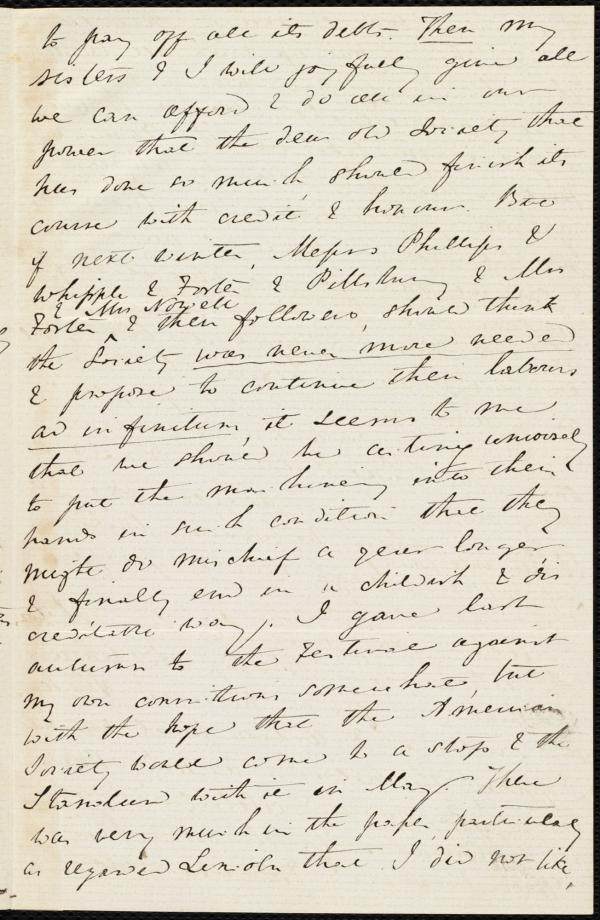 to pay off all its debts. Then my
sisters & I will joyfully give all
we can afford & do all in our
power that the dear old Society that
has done so much should finish its
course with credit & honour. But
if next winter, Messrs Phillips &
Whipple & Foster & Pillsbury & Mrs
& Mrs Nowell
Foster & their followers, should think
the Society was never more needed
& propose to continue their labours
ad infinitum it seems to me
that we should be acting unwisely
to put the machinery into their
hands in such condition that they
might do mischief a year longer
& finally end in a childish & dis
creditable way. I gave last
autumn to the Festival against
my own convictions somewhat, but
with the hope that the American
Society would come to a stop & the
Standard with it in May. There
was very much in the paper, particularly
as regarded Lincoln that I did not like,